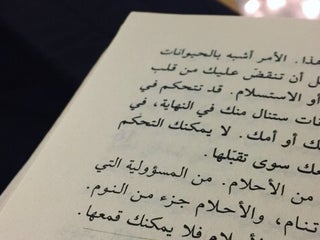 هذا. الأمر أشبه بالحيوانات
ل أن تنقضّ عليك من قلب
أو الاستسلام. قد تتحكم في
ات ستنال منك في النهاية، في
ك أو أمك. لا يمكنك التحكم
عك سوى تقبّلها.
من الأحلام. من المسؤولية التي
تنام، والأحلام جزء من النوم.
أحلام فلا يمكنك قمعها.